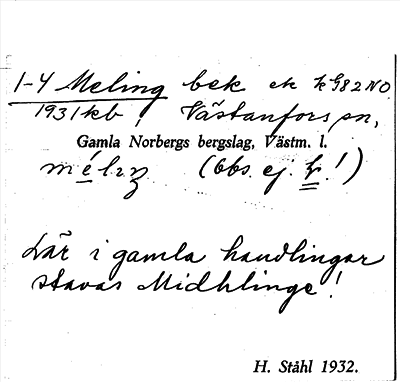 1-4 Meling bek ek k G82NO
1931kb! Västanfors sn,
Gamla Norbergs bergslag, Västm. l.
mélıŋ (Obs. ej. l̥!)
Lär i gamla handlingar
stavas Midhlinge!
H. Ståhl 1932.